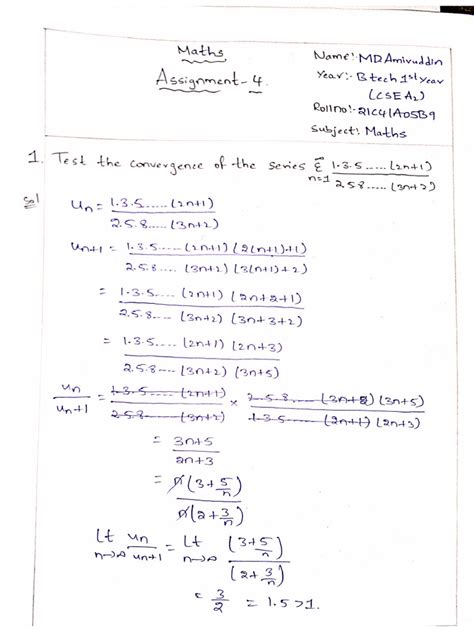 Maths
Assignment-4.
Name:- MD Amiruddin
Year:- Btech 1st Year
(CSE A2)
Rollno:- 21C41A05B9
Subject: Maths
1. Test the convergence of the series Σ^∞_{n=1} 1.3.5.....(2n+1) / 2.5.8.....(3n+2)
Sol
u_n = 1.3.5.....(2n+1) / 2.5.8....(3n+2)
u_{n+1} = 1.3.5....(2n+1)(2(n+1)+1) / 2.5.8....(3n+2)(3(n+1)+2)
= 1.3.5....(2n+1)(2n+2+1) / 2.5.8....(3n+2)(3n+3+2)
= 1.3.5....(2n+1)(2n+3) / 2.5.8....(3n+2)(3n+5)
u_n / u_{n+1} = 1.3.5.....(2n+1) / 2.5.8.....(3n+2) × 2.5.8....(3n+2)(3n+5) / 1.3.5....(2n+1)(2n+3)
= 3n+5 / 2n+3
= n(3+5/n) / n(2+3/n)
Lt_{n→∞} u_n / u_{n+1} = Lt_{n→∞} (3+5/n) / (2+3/n)
= 3/2 = 1.5>1.